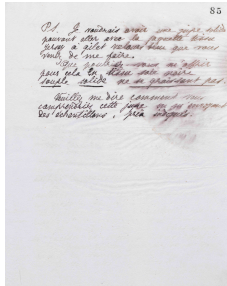 85
P.S. Je voudrais avoir une jupe
pouvant aller avec la jaquette
que vous
venez de me faire.
Que pouvez-vous m'offrir
pour cela en noire
souple solide ne se graissant pas
Veuillez me dire comment vous
comprendriez cette jupe en m'envoyant
des échantillons, prix indiqués.